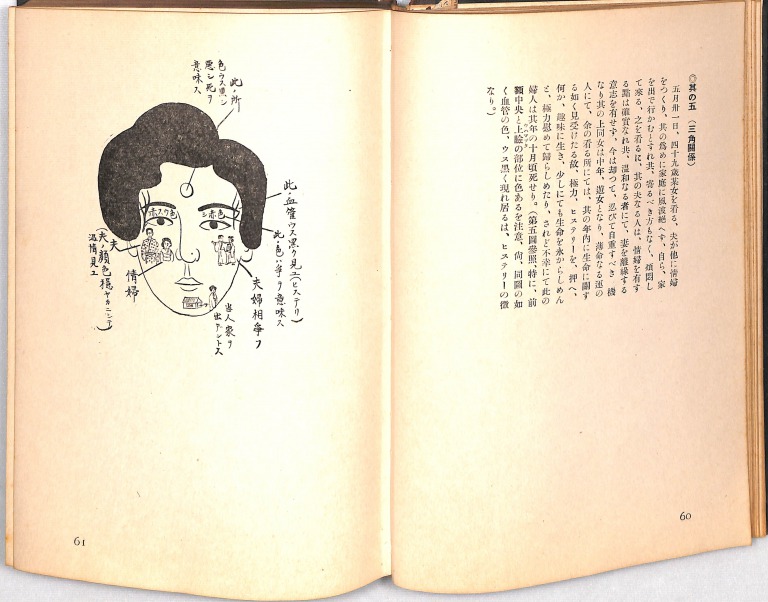 ◎其の五（三角關係）
五月卅一日、四十九歳某女を看る、夫が他に情婦
をつくり、其の爲めに家庭に風波絶へず、自ら、家
を出で行かむとすれ共、寄るべき方もなく、煩悶し
て來る、之を看るに、其の夫なる人は、情婦を有す
る點は確實なれ共、溫和なる者にて、妻を離縁する
意志を有せず、今は却つて、忍びて自重すべき　機
なり其の上同女は中年、遊女となり、薄命なる運の
人にて、余の看る所にては、其の年内に生命に關す
る如く見受けたる故、極力、ヒステリーを、押へ、
何か、趣味に生き、少しにても生命を永からしめん
と、極力慰めて歸らしめたり、されど不幸にて此の
婦人は其年の十月頃死せり。（第五圖參照、特に、前
額中央と上瞼の部位に色あるを注意、尙、同圖の如
く血管の色、ウス黑く現れ居るは、ヒステリーの徵
なり。）
60
此ノ所
色ウス黒シ
悪シ死ヲ
意味ス
此ノ血管ウス黒ク見エ（ヒステリ）
此ノ色ハ争ヲ意味ス
赤スク色
シ赤色
夫婦相争フ
当人家ヲ
出デントス
情婦
夫
（夫ノ顔色穏ヤカニシテ
温情見エ）
61